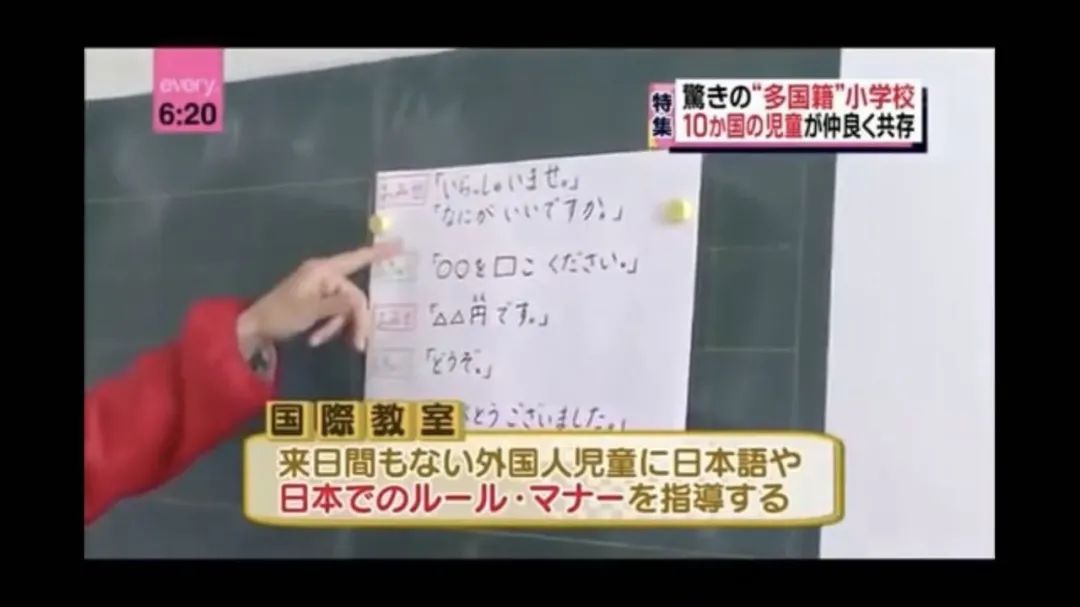 every.
6:20
特集
驚きの“多国籍”小学校
10か国の児童が仲良く共存
おみせ「いらっしゃいませ。」
「なにが いいですか。」
「○○を □こ ください。」
おみせ「△△円です。」
えん
「どうぞ。」
とうございました。
国際教室
来日間もない外国人児童に日本語や
日本でのルール・マナーを指導する